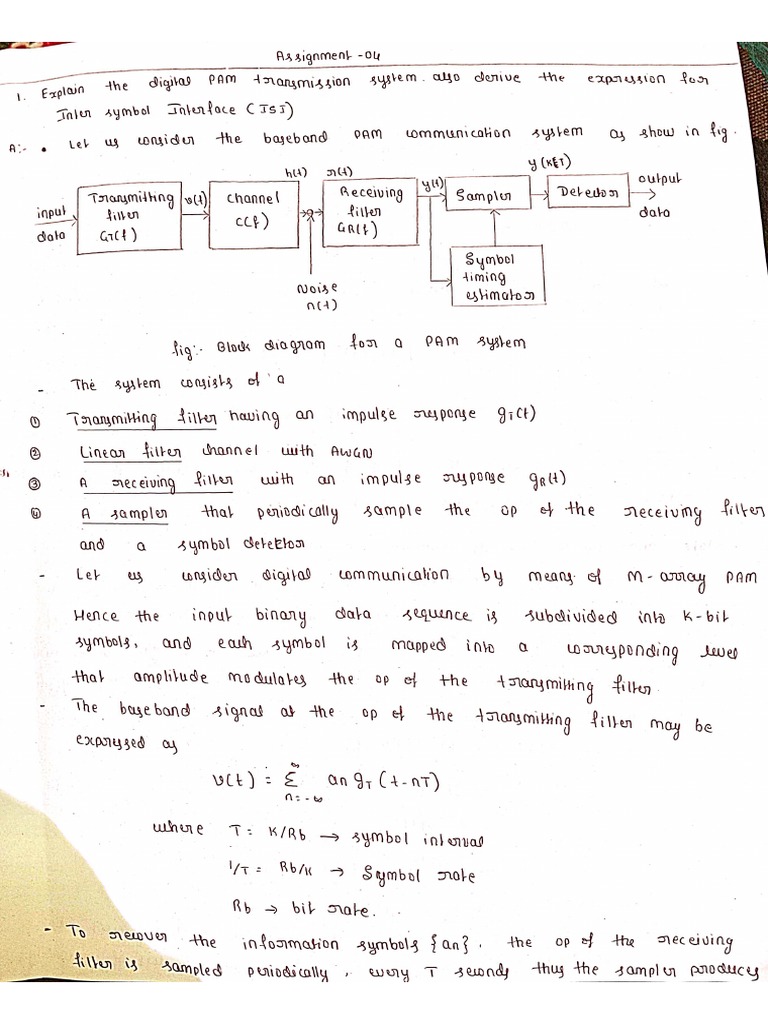 Assignment -04
1. Explain the digital PAM transmission system. also derive the expression for
Inter symbol Interface (ISI)
A:- • Let us consider the baseband PAM communication system as show in fig.
input
data
Transmitting
filter
GT(f)
v(t)
Channel
C(f)
h(t)
Noise
n(t)
r(t)
Receiving
filter
GR(f)
y(t)
Sampler
Symbol
timing
estimator
y(KET)
Detector
output
data
fig:- Block diagram for a PAM system
- The system consists of a
① Transmitting filter having an impulse response gT(t)
② Linear filter channel with AWGN
③ A receiving filter with an impulse response gR(t)
④ A sampler that periodically sample the op of the receiving filter
and a symbol detektor
- Let us consider digital communication by means of M-array PAM
Hence the input binary data sequence is subdivided into K-bit
symbols, and each symbol is mapped into a corresponding level
that amplitude modulates the op of the transmitting filter.
- The baseband signal at the op of the transmitting filter may be
expressed as
v(t) = ∞ Σ n=-∞ an gT (t-nT)
where T = K/Rb → symbol interval
1/T = Rb/K → Symbol rate
Rb → bit rate.
- To recover the information symbols {an}, the op of the receiving
filter is sampled periodically, every T seconds thus the sampler produces